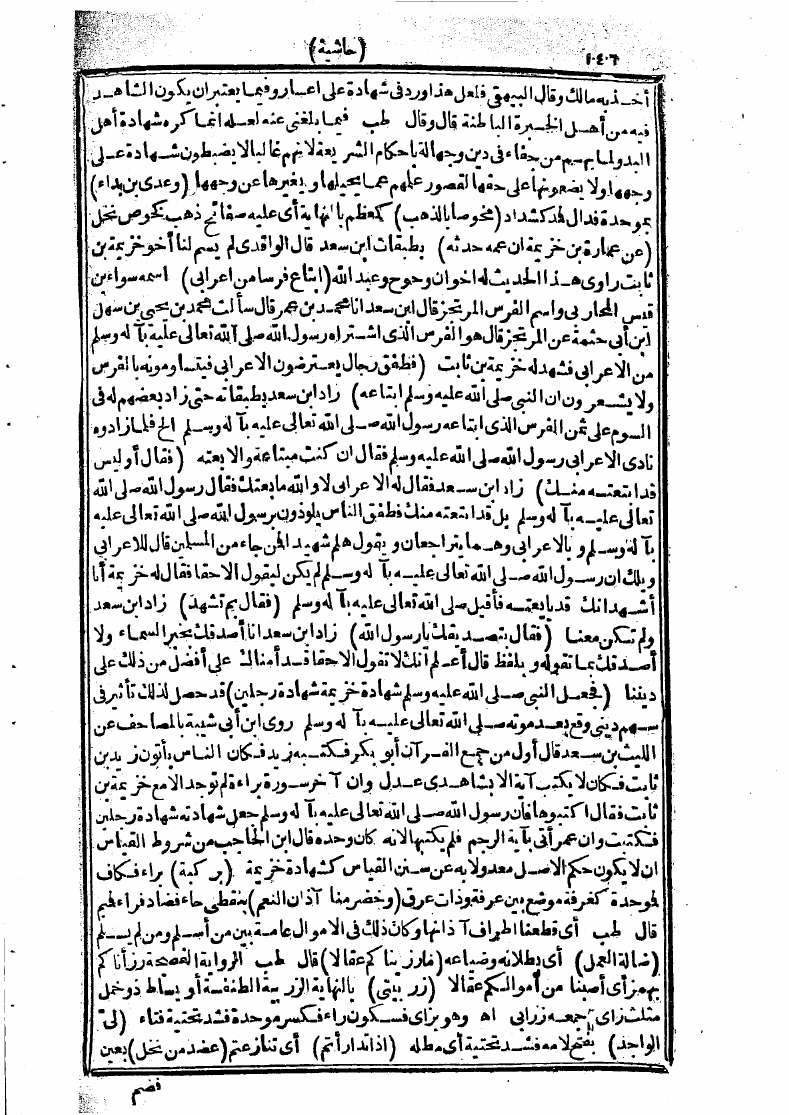 ١٠٤٠٦
(حاشية)
أخذ به مالك وقال البيهقي فلعل هذا ورد في شهادة على اعسار وفيما يعتبران يكون الشاهد
فيه من أهل الخبرة الباطنة قال وقال طب فيما بلغني عنه لعله انما كره شهادة أهل
البدو لما بهم من جفاء في دين وجهالة باحكام الشريعة لانهم غالبا لا يضبطون شهادة على
وجهها ولا يضعونها على حقها لقصور علمهم عما يحيلها ويغيرها عن وجهها (وعدى بن بداء)
بموحدة فدال فمد كشداد (مخوصا بالذهب) كمعظم بالنهاية أى عليه صفائح ذهب كخوص نخل
(عن عمارة بن خزيمة ان عمه حدثه) بطبقات ابن سعد قال الواقدى لم يسم لنا أخو خزيمة بن
ثابت راوى هذا الحديث له اخوان وحوح وعبد الله (ابتاع فرسا من اعرابى) اسمه سواء بن
قيس المحاربى واسم الفرس المرتجز قال ابن سعد انا محمد بن عمر قال سألت محمد بن يحيى بن سهل
ابن أبى حثمة عن المرتجز قال هو الفرس الذى اشتراه رسول الله صلى الله تعالى عليه بآ له وسلم
من الاعرابى فشهد له خزيمة بن ثابت (فطفق رجال يعترضون الاعرابى فيتساومونه بالفرس
ولا يشعرون ان النبى صلى الله عليه وسلم ابتاعه) زاد ابن سعد بطبقاته حتى زاد بعضهم له فى
السوم على ثمن الفرس الذى ابتاعه رسول الله صلى الله تعالى عليه بآ له وسلم الخ فلما زادوه
نادى الاعرابى رسول الله صلى الله عليه وسلم فقال ان كنت مبتاعه والا بعته (فقال أو ليس
قد ابتعته منك) زاد ابن سعد فقال له الاعرابى لا والله ما بعتك فقال رسول الله صلى الله
تعالى عليه بآ له وسلم بل قد ابتعته منك فطفق الناس يلوذون برسول الله صلى الله تعالى عليه
بآ له وسلم وبالاعرابى وهما يتراجعان ويقول هلم شهيدا فمن جاء من المسلمين قال للاعرابى
ويلك ان رسول الله صلى الله تعالى عليه بآ له وسلم لم يكن ليقول الا حقا فقال له خزيمة أنا
أشهد انك قد بايعته فأقبل صلى الله تعالى عليه بآ له وسلم (فقال بم تشهد) زاد ابن سعد
ولم تكن معنا (فقال بتصديقك يا رسول الله) زاد ابن سعد انا أصدقك بخبر السماء ولا
أصدقك بما تقوله وبلفظ قال أعلم انك لا تقول الا حقا قد أمناك على أفضل من ذلك على
ديننا (فجعل النبى صلى الله عليه وسلم شهادة خزيمة شهادة رجلين) قد حصل لذلك تأثير فى
مهم دينى وقع بعد موته صلى الله تعالى عليه بآ له وسلم روى ابن أبى شيبة بالمصاحف عن
الليث بن سعد قال أول من جمع القرآن أبو بكر فكتبه زيد فكان الناس يأتون زيد بن
ثابت فكان لا يكتب آية الا بشاهدى عدل وان آخر سورة براءة لم توجد الا مع خزيمة بن
ثابت فقال اكتبوها فان رسول الله صلى الله تعالى عليه بآ له وسلم جعل شهادته شهادة رجلين
فكتبت وان عمر أتى بآية الرجم فلم يكتبها لانه كان وحده قال ابن الحاجب من شروط القياس
ان لا يكون حكم الاصل معدولا به عن سنن القياس كشهادة خزيمة (بركبة) براء فكاف
فموحدة كغرفة موضع بين عرفة وذات عرق (وخضرمنا آذان النعم) بنقطى حاء فضاد فراء فميم
قال طب أى قطعنا اطراف آذانها وكان ذلك فى الاموال علامة بين من أسلم ومن لم يسلم
(ضالة العمل) أى بطلانه وضياعه (مارزيناكم عقالا) قال طب الرواية الفصيحة رزأناكم
بهمز أى أصبنا من أموالكم عقالا (زربيتى) بالنهاية الزربية الطنفسة أو بساط ذو خمل
مثلث زاى جمعه زرابى اه وهو بزاى فسكون راء فكسر موحدة فشد تحتية فتاء (لىّ
الواجد) بفتح لامه فشد تحتية أى مطله (اذا تدارأتم) أى تنازعتم (عضد من نخل) بعين
فضم